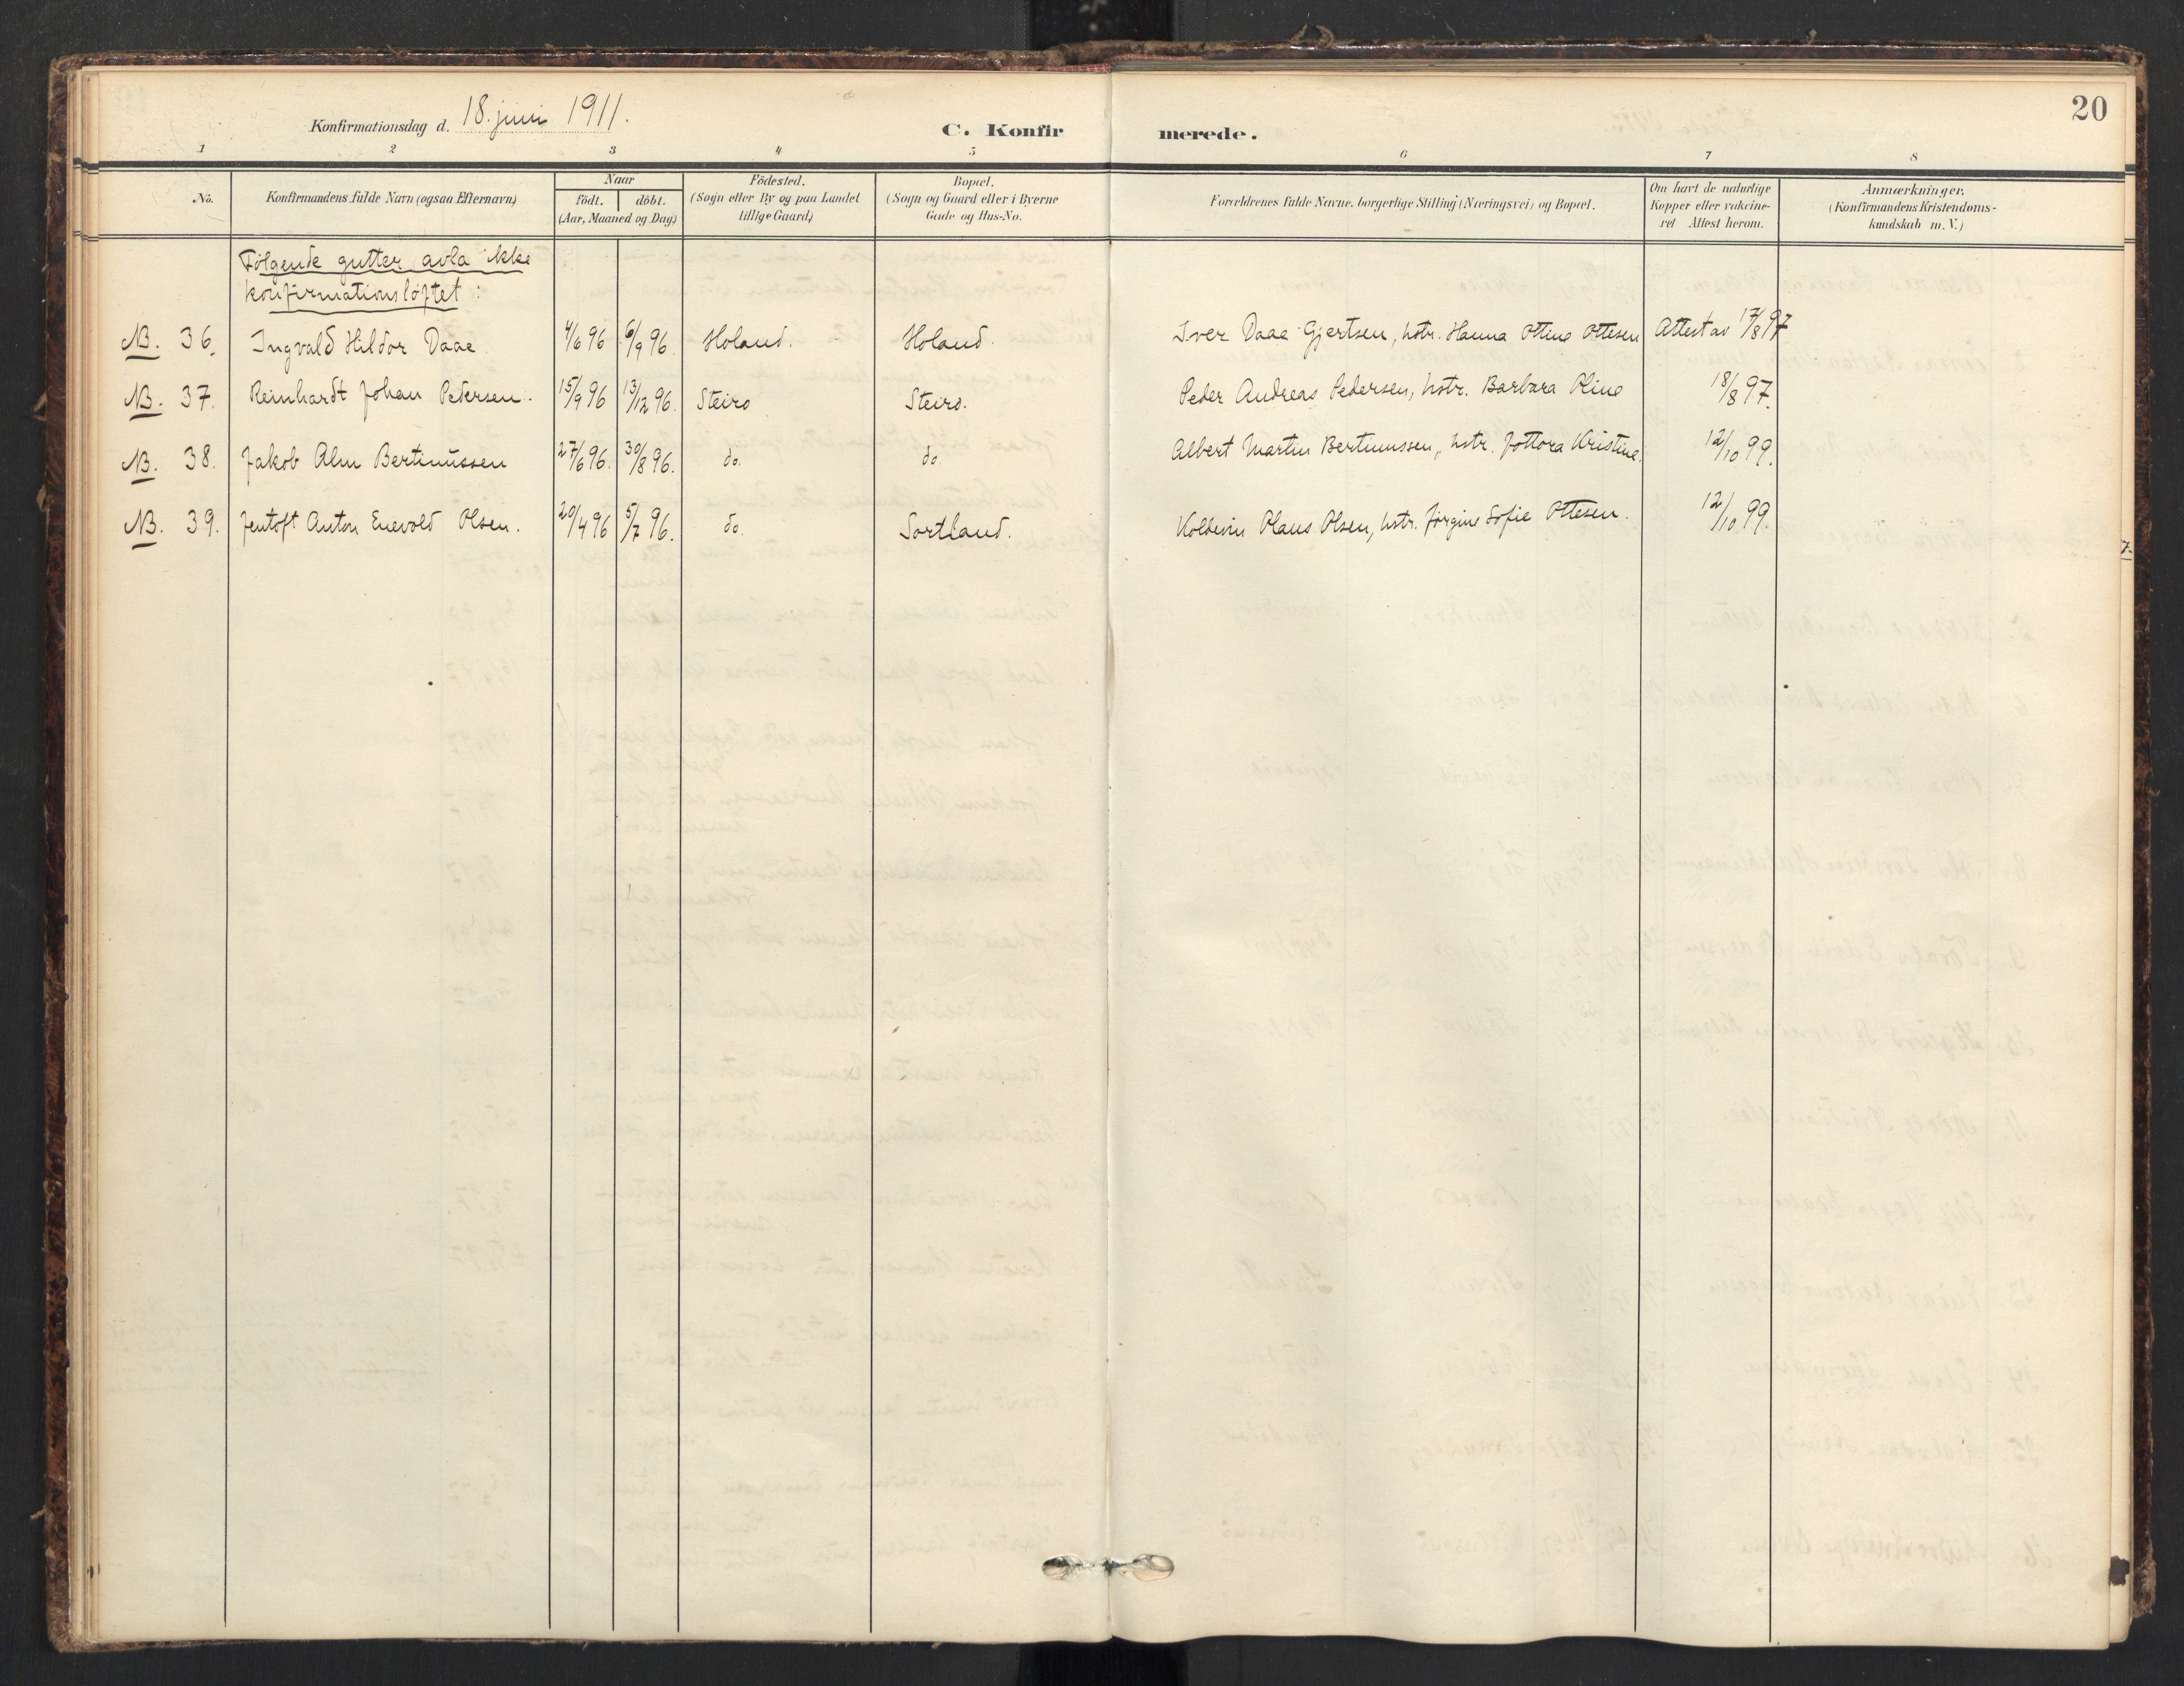 20
Konfirmationsdag d. 18. juni 1911.
C. Konfirmerede.
1 2 3 4 5 6 7 8
No. Konfirmandens fulde Navn (ogsaa Efternavn) Naar födt. döbt. (Aar, Maaned og Dag) Födested. (Sogn eller By og paa Landet tillige Gaard) Bopæl. (Sogn og Gaard eller i Byerne Gade og Hus-No. Forældrenes fulde Navne, borgerlige Stilling (Næringsvei) og Bopæl. Om havt de naturlige Kopper eller vakcineret Attest herom. Anmærkninger. (Konfirmandens Kristendomskundskab m. V.)
Følgende gutter avla ikke
konfirmationsløftet:
NB. 36. Ingvald Hildor Daae. 4/6 96 6/9 96. Holand. Holand. Iver Daae Gjertsen, hstr. Hanna Ottine Ottesen Attest av 17/8 97
NB. 37. Reinhardt Johan Pedersen. 15/9 96 13/12 96. Steiro Steiro. Peder Andreas Pedersen, hstr. Barbara Oline 18/8 97.
NB. 38. Jakob Alm Bertinussen 27/6 96. 30/8 96. do. do Albert Martin Bertinussen, hstr. Jottora Kristine. 12/10 99.
NB. 39. Jentoft Anton Enevold Olsen. 20/4 96 5/7 96. do. Sortland. Kolbein Olaus Olsen, hstr. Jørgine Sofie Ottesen. 12/10 99.